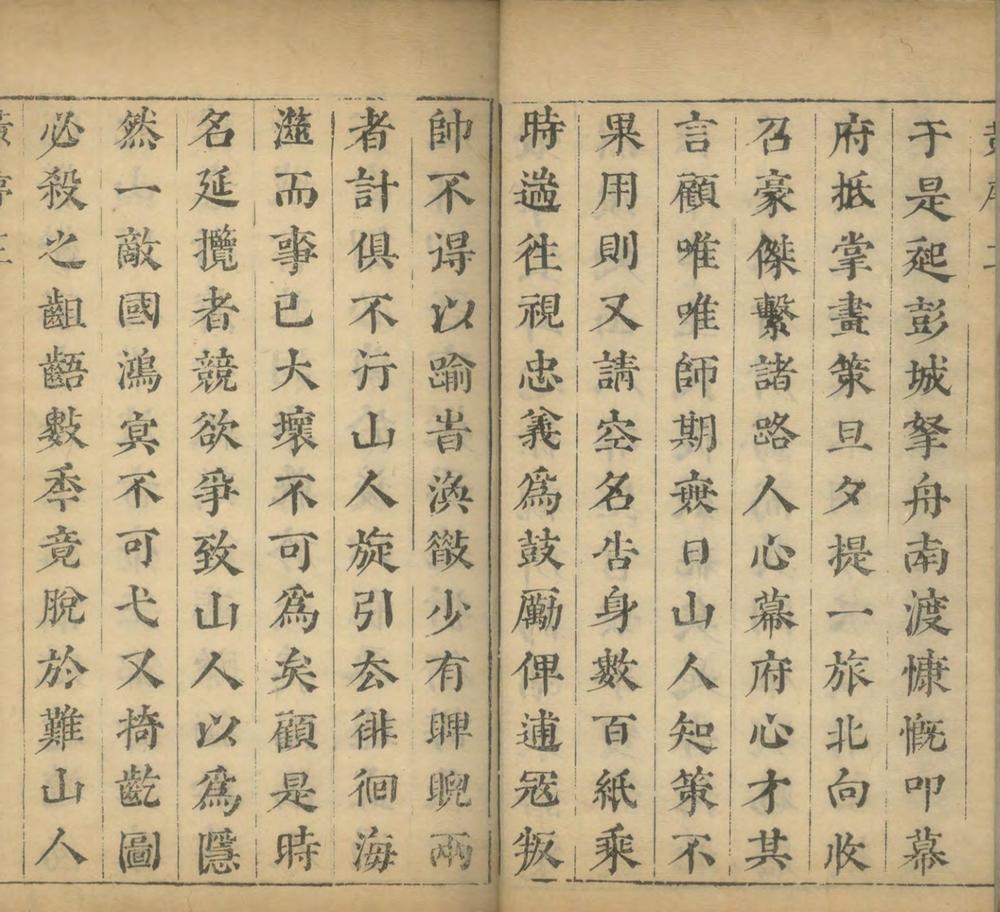 于是彭城拏舟南渡慷慨叩幕
府抵掌畫策旦夕提一旅北向收
召豪傑繫諸路人心幕府心才其
言顧唯唯師期日山人知策不
果用則又請空名告身數百紙乘
時遄徃視忠義爲鼓勵俾逋寇叛
帥不得以踰旹渙散少有睥睨兩
者計俱不行山人旋引厺徘徊海
澨而事已大壞不可爲矣顧是時
名延攬者競欲爭致山人以爲隱
然一敵國鴻㝠不可弋又掎齕圖
必殺之齟齬數秊竟脫於難山人